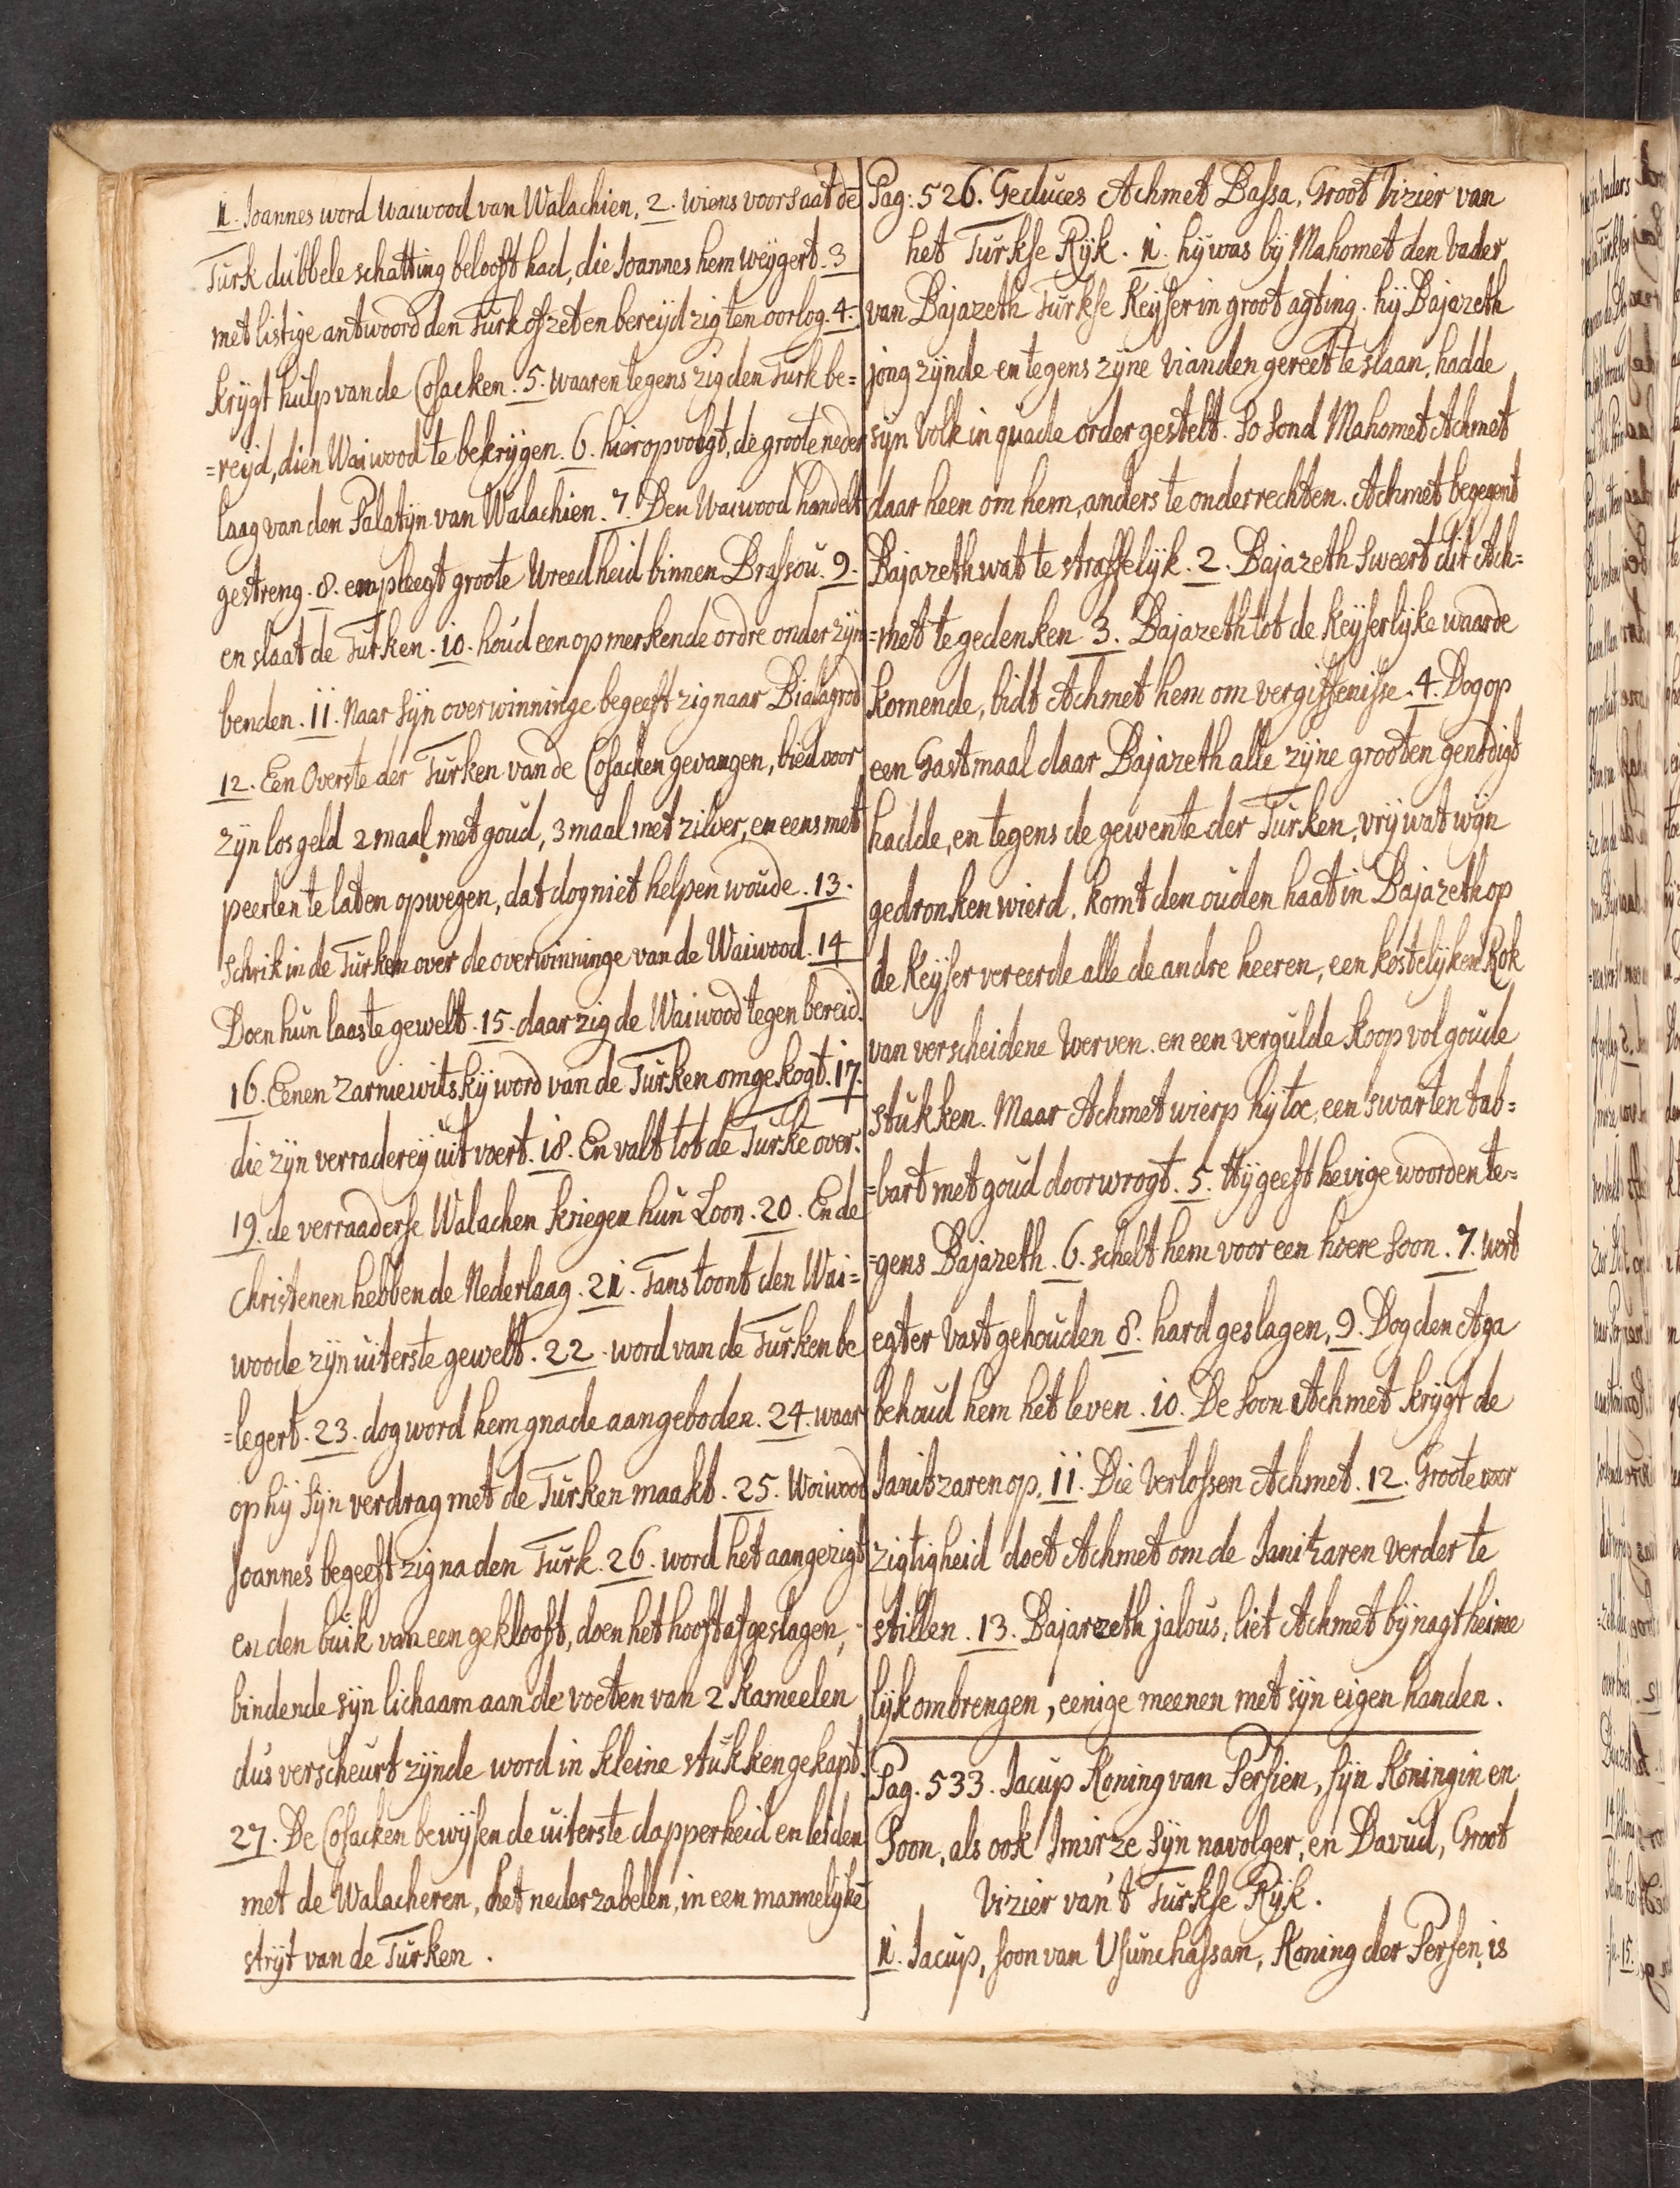 1. Joannes word waiwood van Walachien, 2. wiens voorsaat de
Turk dubbele schatting belooft had, die Joannes hem weygert. 3
met listige antwoord den Turk ofzet en bereijd zig ten oorlog. 4.
krygt hulp van de Cosacken. 5. waaren tegens zig den Turk be=
=reijd, dien Waiwood te bekrygen. 6. hier op volgt, de groote neder
laag van den Palatijn van Walachien. 7. Den Waiwood handelt
gestreng. 8. en pleegt groote Wreedheid binnen Brassou. 9.
en slaat de Turken. 10. houd een opmerkende ordre onder zijn
benden. 11. Naar sijn overwinninge begeeft zig naar Bialagrod
12. Een Overste der Turken van de Cosacken gevangen, bied voor
zyn los geld 2 maal met goud, 3 maal met zilver, en eens met
peerlen te laten opwegen, dat dog niet helpen woude. 13.
Schrik in de Turken over de overwinninge van de Waiwood. 14
Doen hun laaste gewelt. 15. daar zig de Waiwood tegen bereid.
16. Eenen Zarniewitskij word van de Turken omgekogt. 17.
die zyn verraderey uit voert. 18. En valt tot de Turke over.
19. de verraaderse Walachen kriegen hun Loon. 20. En de
Christenen hebben de Nederlaag. 21. Tans toont den Wai=
woode zyn uiterste gewelt. 22. word van de Turken be
=legert. 23. dog word hem gnade aangeboden. 24. waar
op hij sijn verdrag met de Turken maakt. 25. Woiwood
Joannes begeeft zig na den Turk. 26. word het aangezigt
en den buik van een geklooft, doen het hooft afgeslagen,
bindende sijn lichaam aan de voeten van 2 Kameelen
dus verscheurt zynde word in kleine stukken gekapt.
27. De Cosacken bewijsen de uiterste dapperheid en leiden
met de Walacheren, het neder zabelen, in een mannelyke
stryt van de Turken.
Pag: 526. Geduces Achmet Bassa, Groot Vizier van
het Turkse Ryk. 1. hij was by Mahomet den Vader
van Bajazeth Turkse Keyser in groot agting. hij Bajazeth
jong zynde en tegens zyne vianden gereet te slaan, hadde
syn Volk in quade order gestelt. So sond Mahomet Achmet
daar heen om hem, anders te onderrechten. Achmet begegent
Bajazeth wat te straffelijk. 2. Bajazeth Sweert dit Ach=
=met te gedenken 3. Bajazeth tot de Keyserlyke waarde
komende, bidt Achmet hem om vergiffenisse. 4. Dog op
een Gastmaal daar Bajazeth alle zyne grooten genodigt
hadde, en tegens de gewente der Turken, vrij wat wyn
gedronken wierd, komt den ouden haat in Bajazeth op
de Keyser vereerde alle de andre heeren, een kostelyken Rok
van verscheidene Verven. en een vergulde Koop vol goude
stukken. Maar Achmet wierp hij toe, een swarten tab=
=bart met goud doorwrogt. 5. Hij geeft hevige woorden te=
=gens Bajazeth. 6. schelt hem voor een hoere soon. 7. wort
egter vast gehouden 8. hard geslagen, 9. Dog den Aga
behoud hem het leven. 10. De soon Achmet krygt de
Janitzaren op. 11. Die Verlossen Achmet. 12. Groote voor
zigtigheid doet Achmet om de Janitzaren verder te
stillen. 13. Bajarzeth jalous, liet Achmet by nagt heime
lijk ombrengen, eenige meenen met syn eigen handen.
Pag. 533. Jacup Koning van Persien, syn Koningin en
Soon, als ook Imirze Syn navolger, en Davud, Groot
Vizier van 't Turkse Ryk.
1. Jacup, soon van Usunchassan, Koning der Persen, is